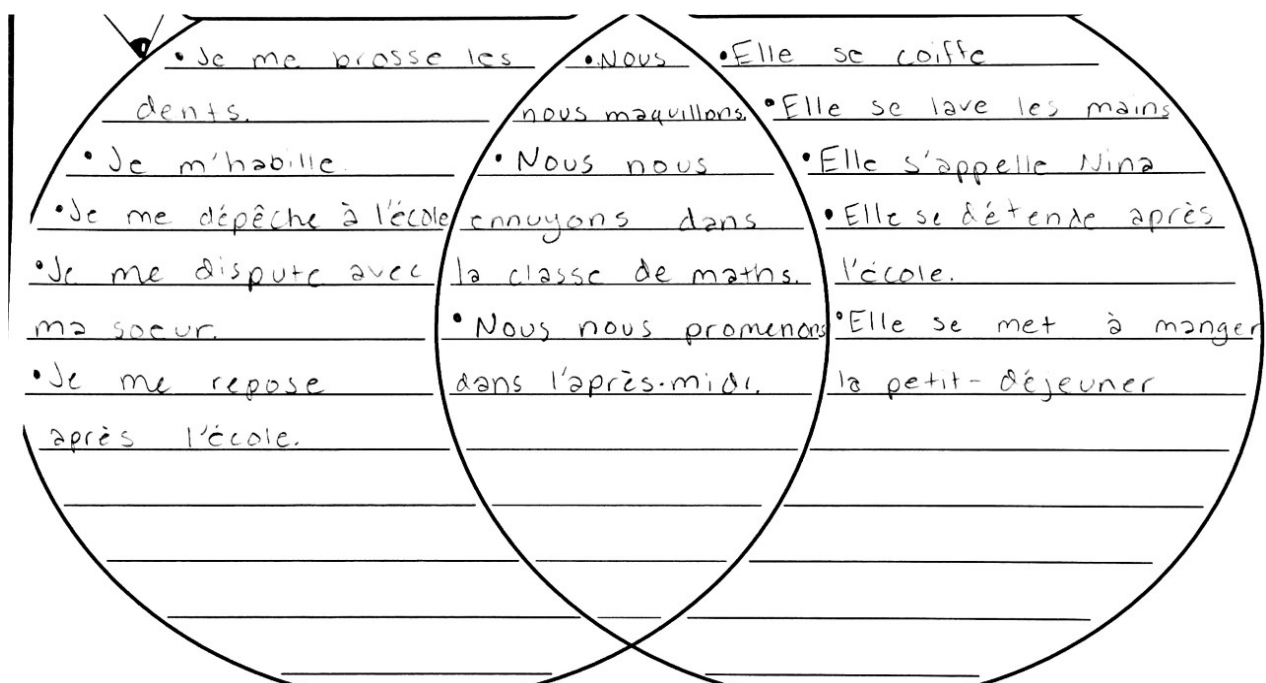 • Je me brosse les
dents.
• Je m'habille.
• Je me dépêche à l'école
• Je me dispute avec
ma soeur.
• Je me repose
après l'école.
• Nous
nous maquillons.
• Nous nous
ennuyons dans
la classe de maths.
• Nous nous promenons
dans l'après-midi.
• Elle se coiffe
• Elle se lave les mains
• Elle s'appelle Nina
• Elle se détende après
l'école.
• Elle se met à manger
la petit-déjeuner